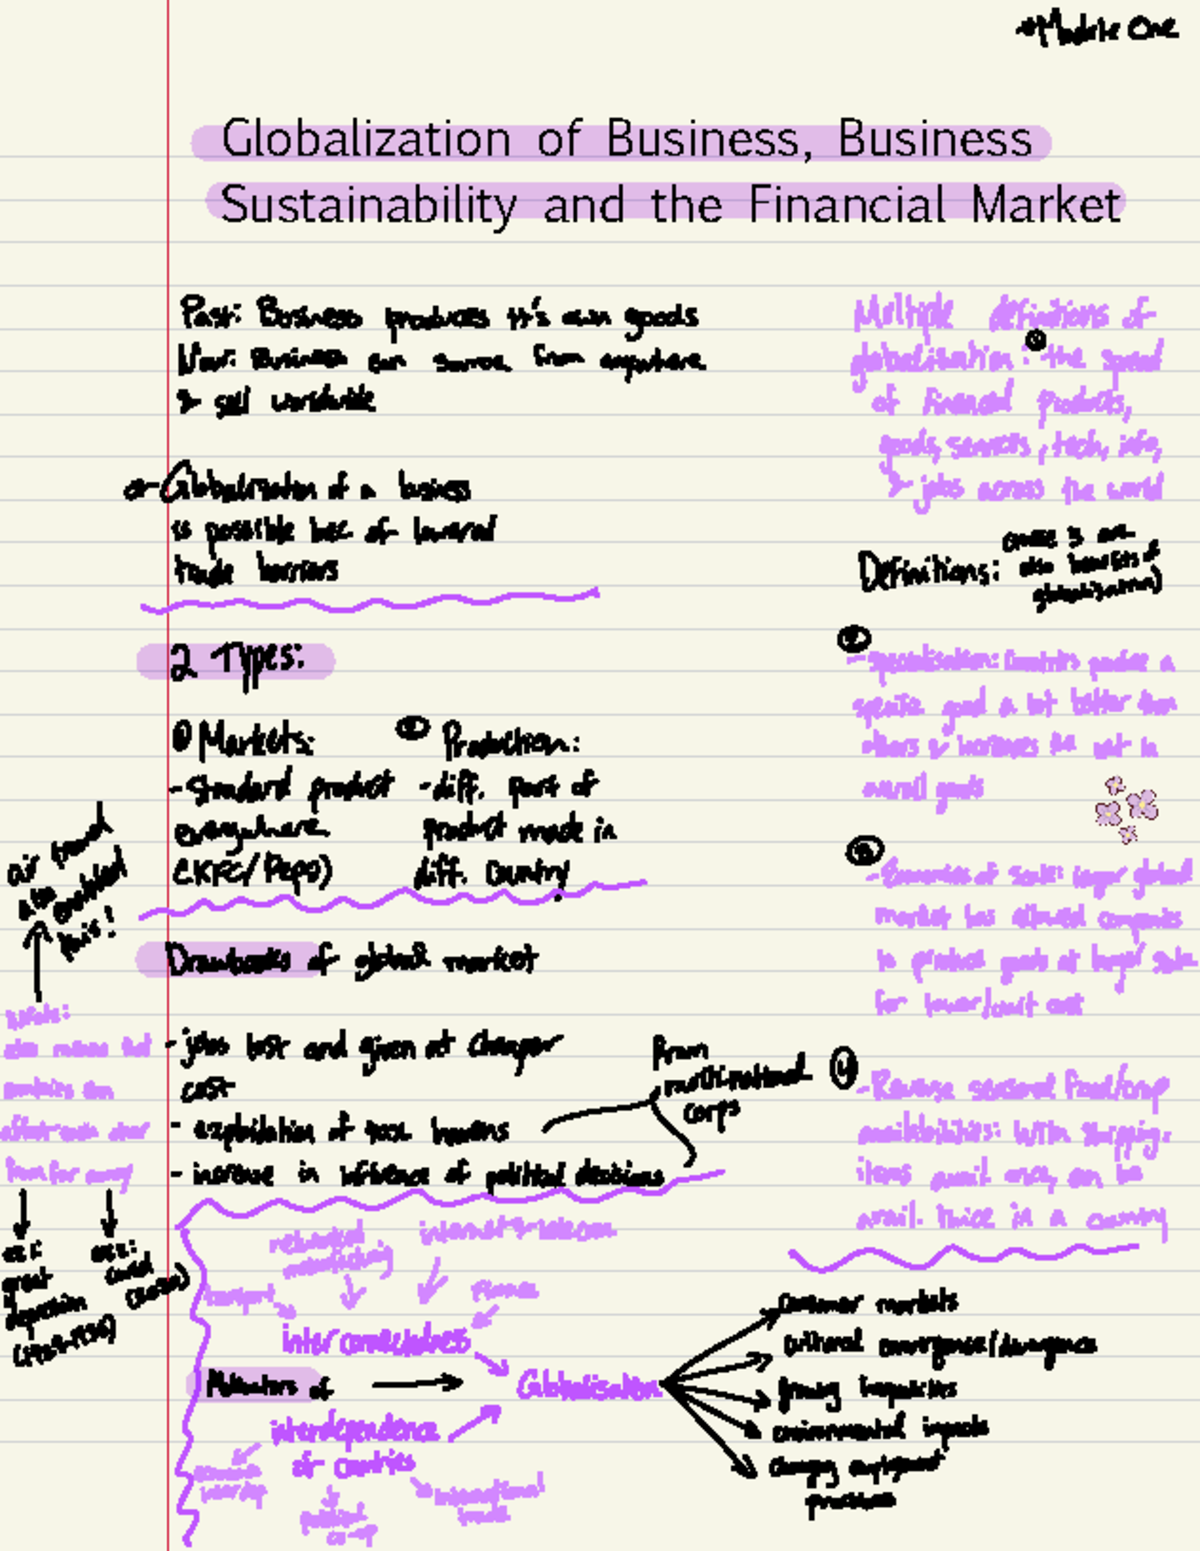 *Module One
Globalization of Business, Business
Sustainability and the Financial Market
Past: Business produces it's own goods
Now: Business can source from anywhere
& sell worldwide
Globalization of a business
is possible bec of lowered
trade barriers
2 Types:
① Markets:
- Standard product
everywhere
(KFC/Pepsi)
② Production:
- diff. part of
product made in
diff. country
Drawbacks of global market
- jobs lost and given at cheaper
cost
- exploitation of poor
- increase in influence of political decisions
from
multi-national
corps
air travel
also enabled
this!
also means that
from far away
ex 1:
great
depression
ex 2:
covid
Multiple definitions of
globalization: ① the spread
of financial products,
goods, services, tech, info,
& jobs across the world
Definitions:
also benefits of
globalization)
②
- specialisation: Countries produce a
specific good a lot better than
others & increases the
overall goods
③
- Economies of scale: larger global
market has allowed companies
to produce goods at larger scale
for lower/unit cost
④
- Reverse seasonal food/crop
availabilities: With shipping,
items avail once, can be
avail. twice in a country
internet & telecom
transport
finance
interconnectedness
Motivators of
Globalisation
interdependence
of countries
international
trade
political
co-op
consumer markets
cultural convergence/divergence
growing inequalities
environmental impacts
changing employment
practices